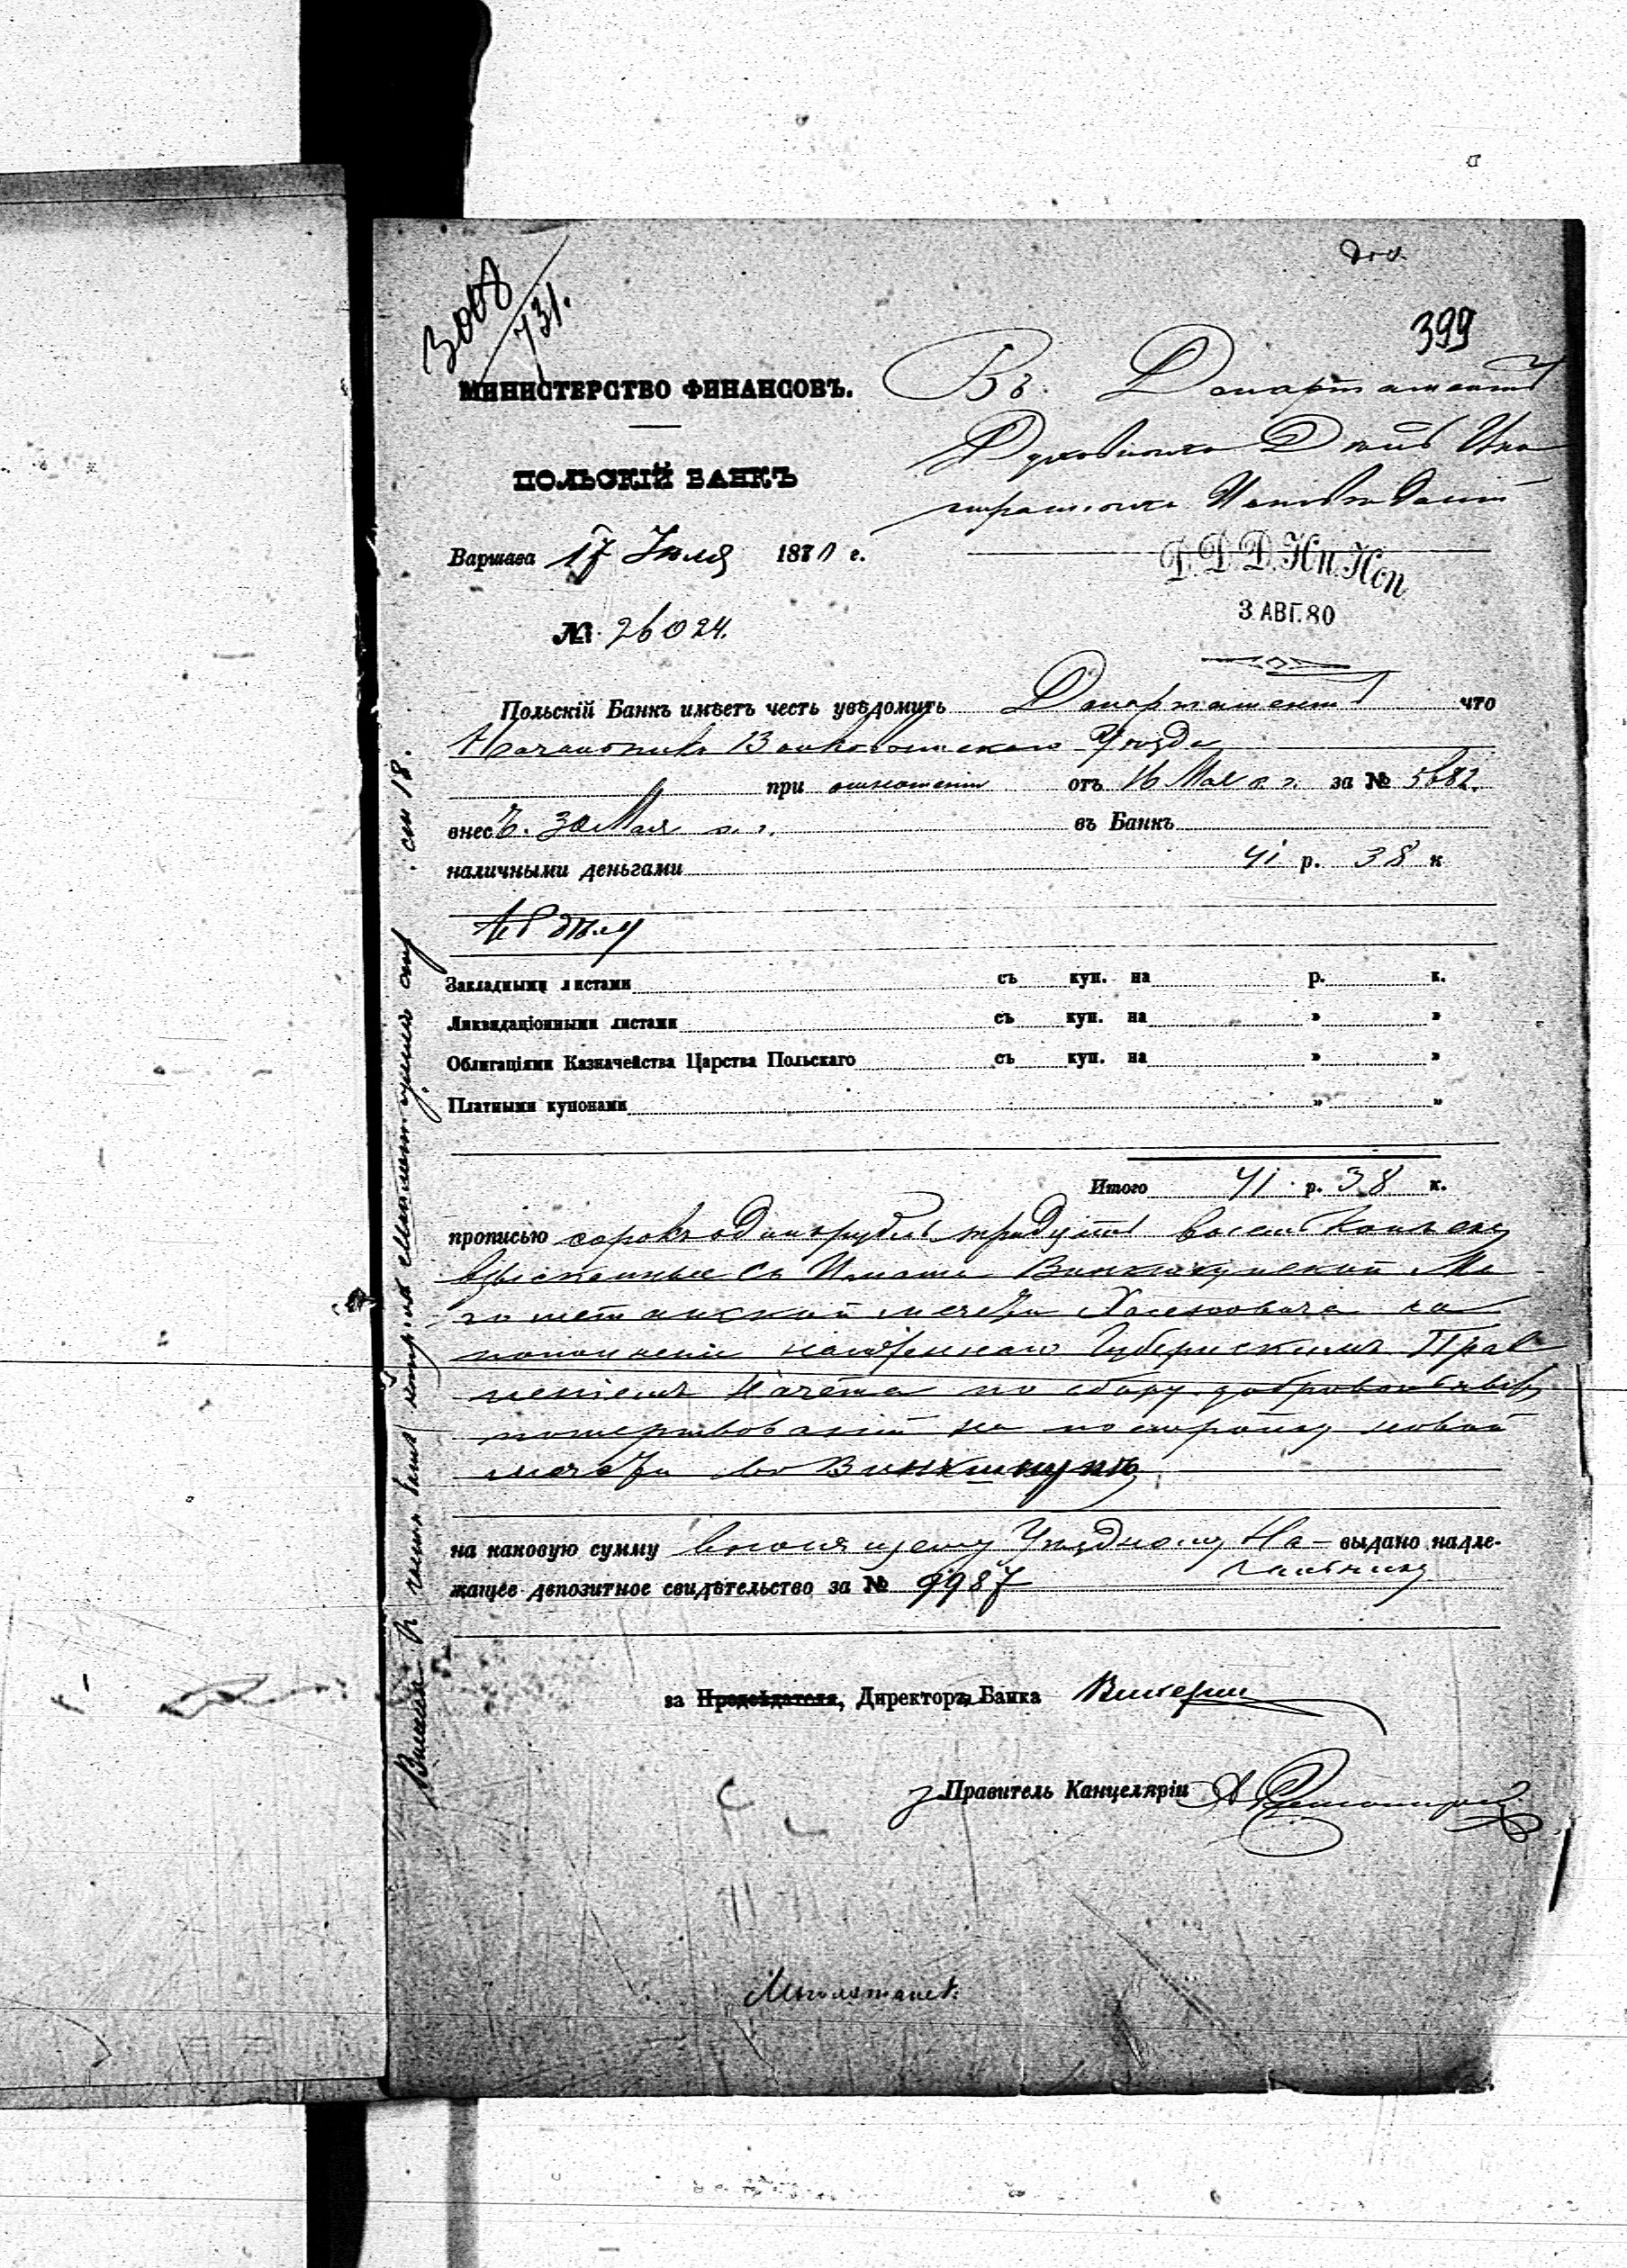 399
3008
731.
МИНИСТЕРСТВО ФИНАНСОВЪ.
Въ Департаментъ
Духовныхъ Дѣлъ Ино
странныхъ Исповѣданій
ПОЛЬСКІЙ БАНКЪ
Варшава 17 Іюля 1880 г.
Д. Д. Д. Ин. Исп.
3 АВГ. 80
№ 26024.
Польскій Банкъ имѣетъ честь увѣдомить Департаментъ что
Начальникъ Волковышскаго Уѣзда
при отношеніи отъ 16 Мая с. г. за № 5682.
внесъ 30 Мая с. г. въ Банкъ
наличными деньгами 41 р. 38 к
Закладными листами съ куп. на р. к.
Ликвидаціонными листами съ куп. на » »
Облигаціями Казначейства Царства Польскаго съ куп. на » »
Платными купонами » »
Итого 41 р. 38 к.
прописью сорокъ одинъ рубль тридцать восемь копѣекъ
взысканные съ Имама Винкшнупской Ма
гометанской мечети на
пополненіе Губернскимъ Прав
леніемъ Начёта по сбору добровольныхъ
пожертвованій на постройку новой
мечети въ Винкшнупѣ
на каковую сумму вносящему Уѣздному На- выдано надле-
чальнику
жащее депозитное свидѣтельство за № 9987
за Предсѣдателя, Директоръ Банка
Правитель Канцеляріи